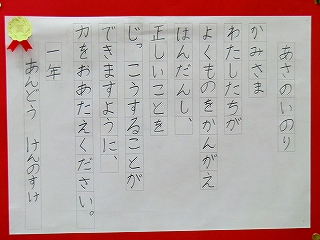 あさのいのり
かみさま
わたしたちが
よくものをかんがえ
はんだんし、
正しいことを
じっこうすることが
できますように、
力をおあたえください。
一年
あんどう けんのすけ